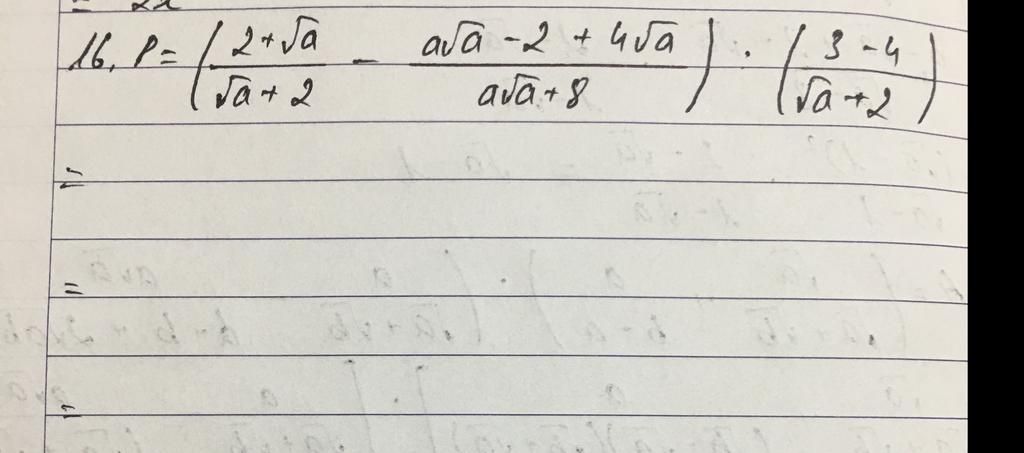 16. P = ( (2 + √a)/(√a + 2) - (a√a - 2 + 4√a)/(a√a + 8) ) · ( (3 - 4)/(√a + 2) )
=
=
=